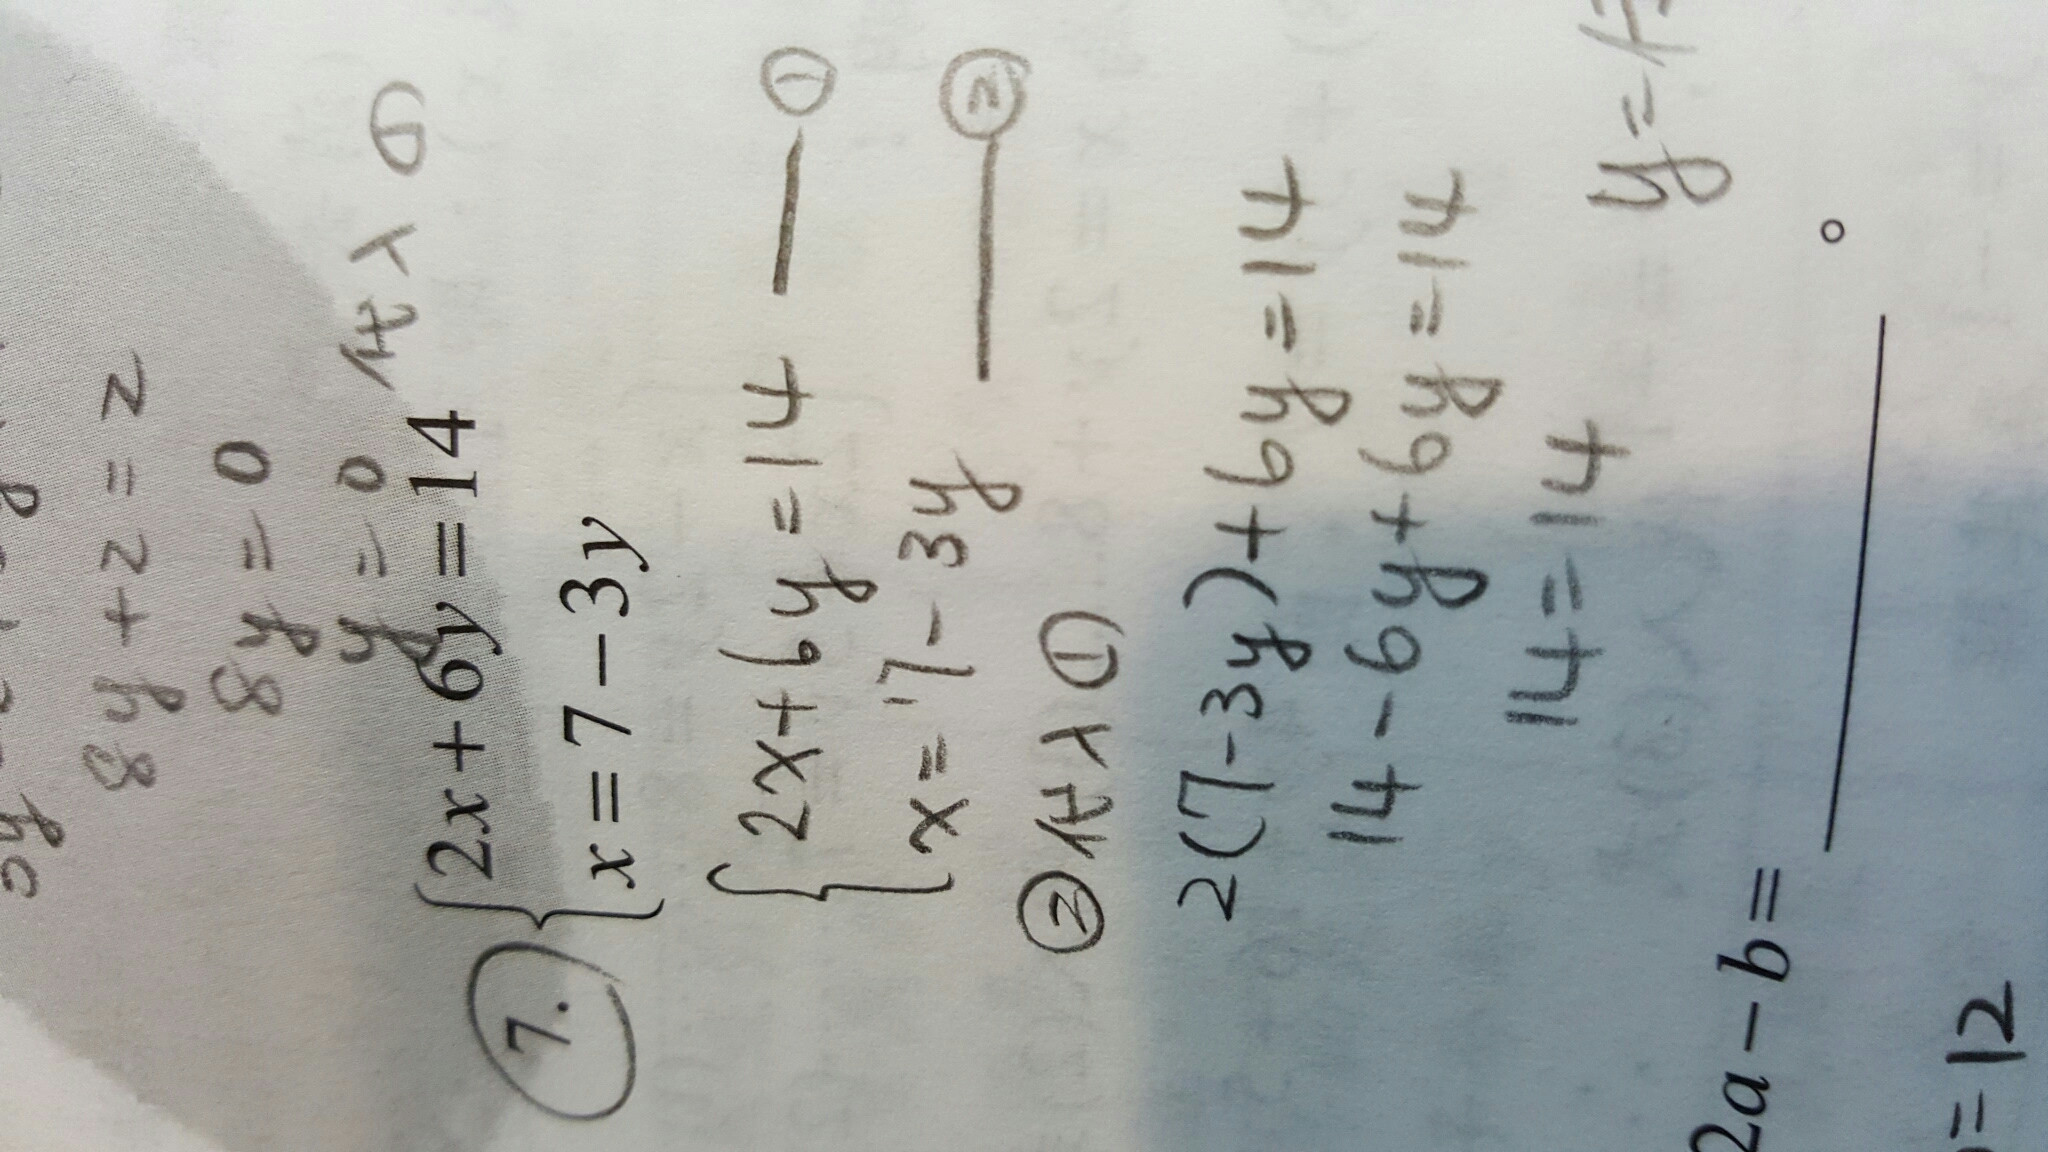 8y+2=2
8y=0
y=0 代入 6
7. {2x+6y=14
x=7-3y
{2x+6y=14 — ①
x=7-3y — ②
②代入①
2(7-3y)+6y=14
14-6y+6y=14
14=14
y=
2a-b= ______ 。
=12